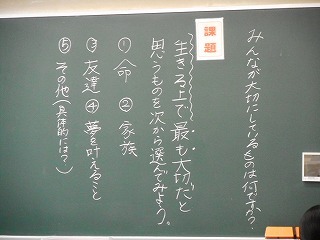 みんなが大切にしているものは何ですか?
課題
生きる上で最も大切だと
思うものを次から選んでみよう。
①命 ②家族
③友達 ④夢を叶えること
⑤その他(具体的には?)